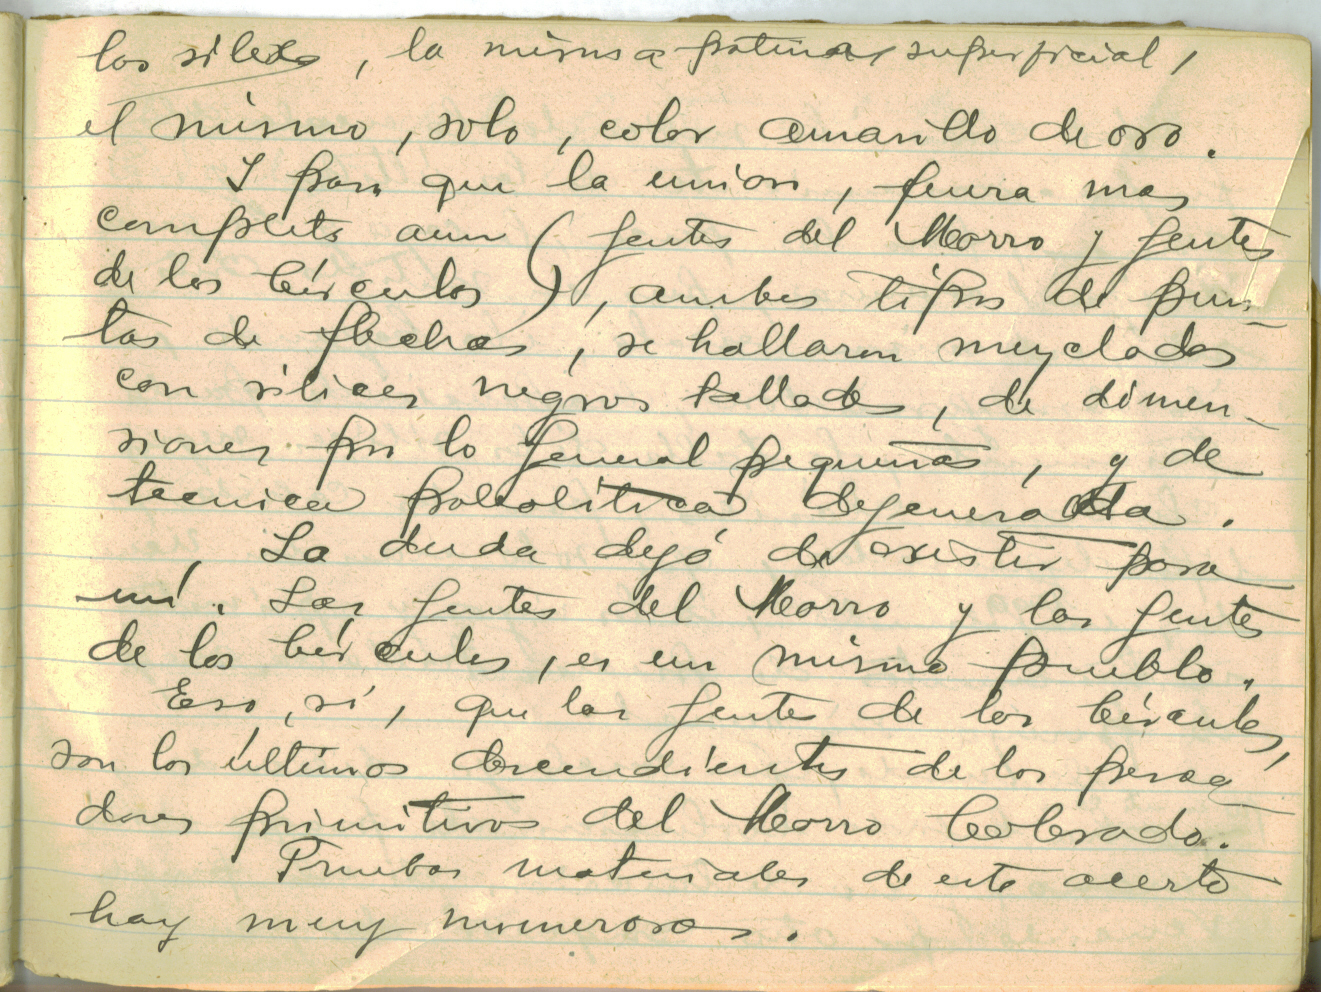 los silex, la misma patina superficial,
el mismo, solo, color amarillo de oro.
Y para que la union, fuera mas
completa aun (gentes del Morro y gentes
de los círculos), ambos tipos de pun-
tas de flechas, se hallaron mezclados
con silices negros tallados, de dimen-
siones por lo general pequeñas, y de
tecnica paleolitica degenerada.
La duda dejó de existir para
mí. Las gentes del Morro y las gentes
de los círculos, es un mismo pueblo.
Eso, sí, que las gentes de los círculos,
son los últimos descendientes de los pesca-
dores primitivos del Morro Colorado.
Pruebas materiales de este acerto
hay muy numerosas.